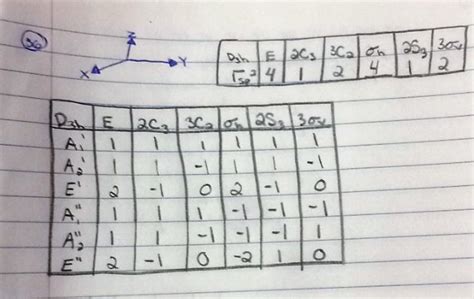 36
Z
X Y
D3h E 2C3 3C2 σh 2S3 3σv
4 1 2 4 1 2
D3h E 2C3 3C2 σh 2S3 3σv
A1' 1 1 1 1 1 1
A2' 1 1 -1 1 1 -1
E' 2 -1 0 2 -1 0
A1'' 1 1 1 -1 -1 -1
A2'' 1 1 -1 -1 -1 1
E'' 2 -1 0 -2 1 0